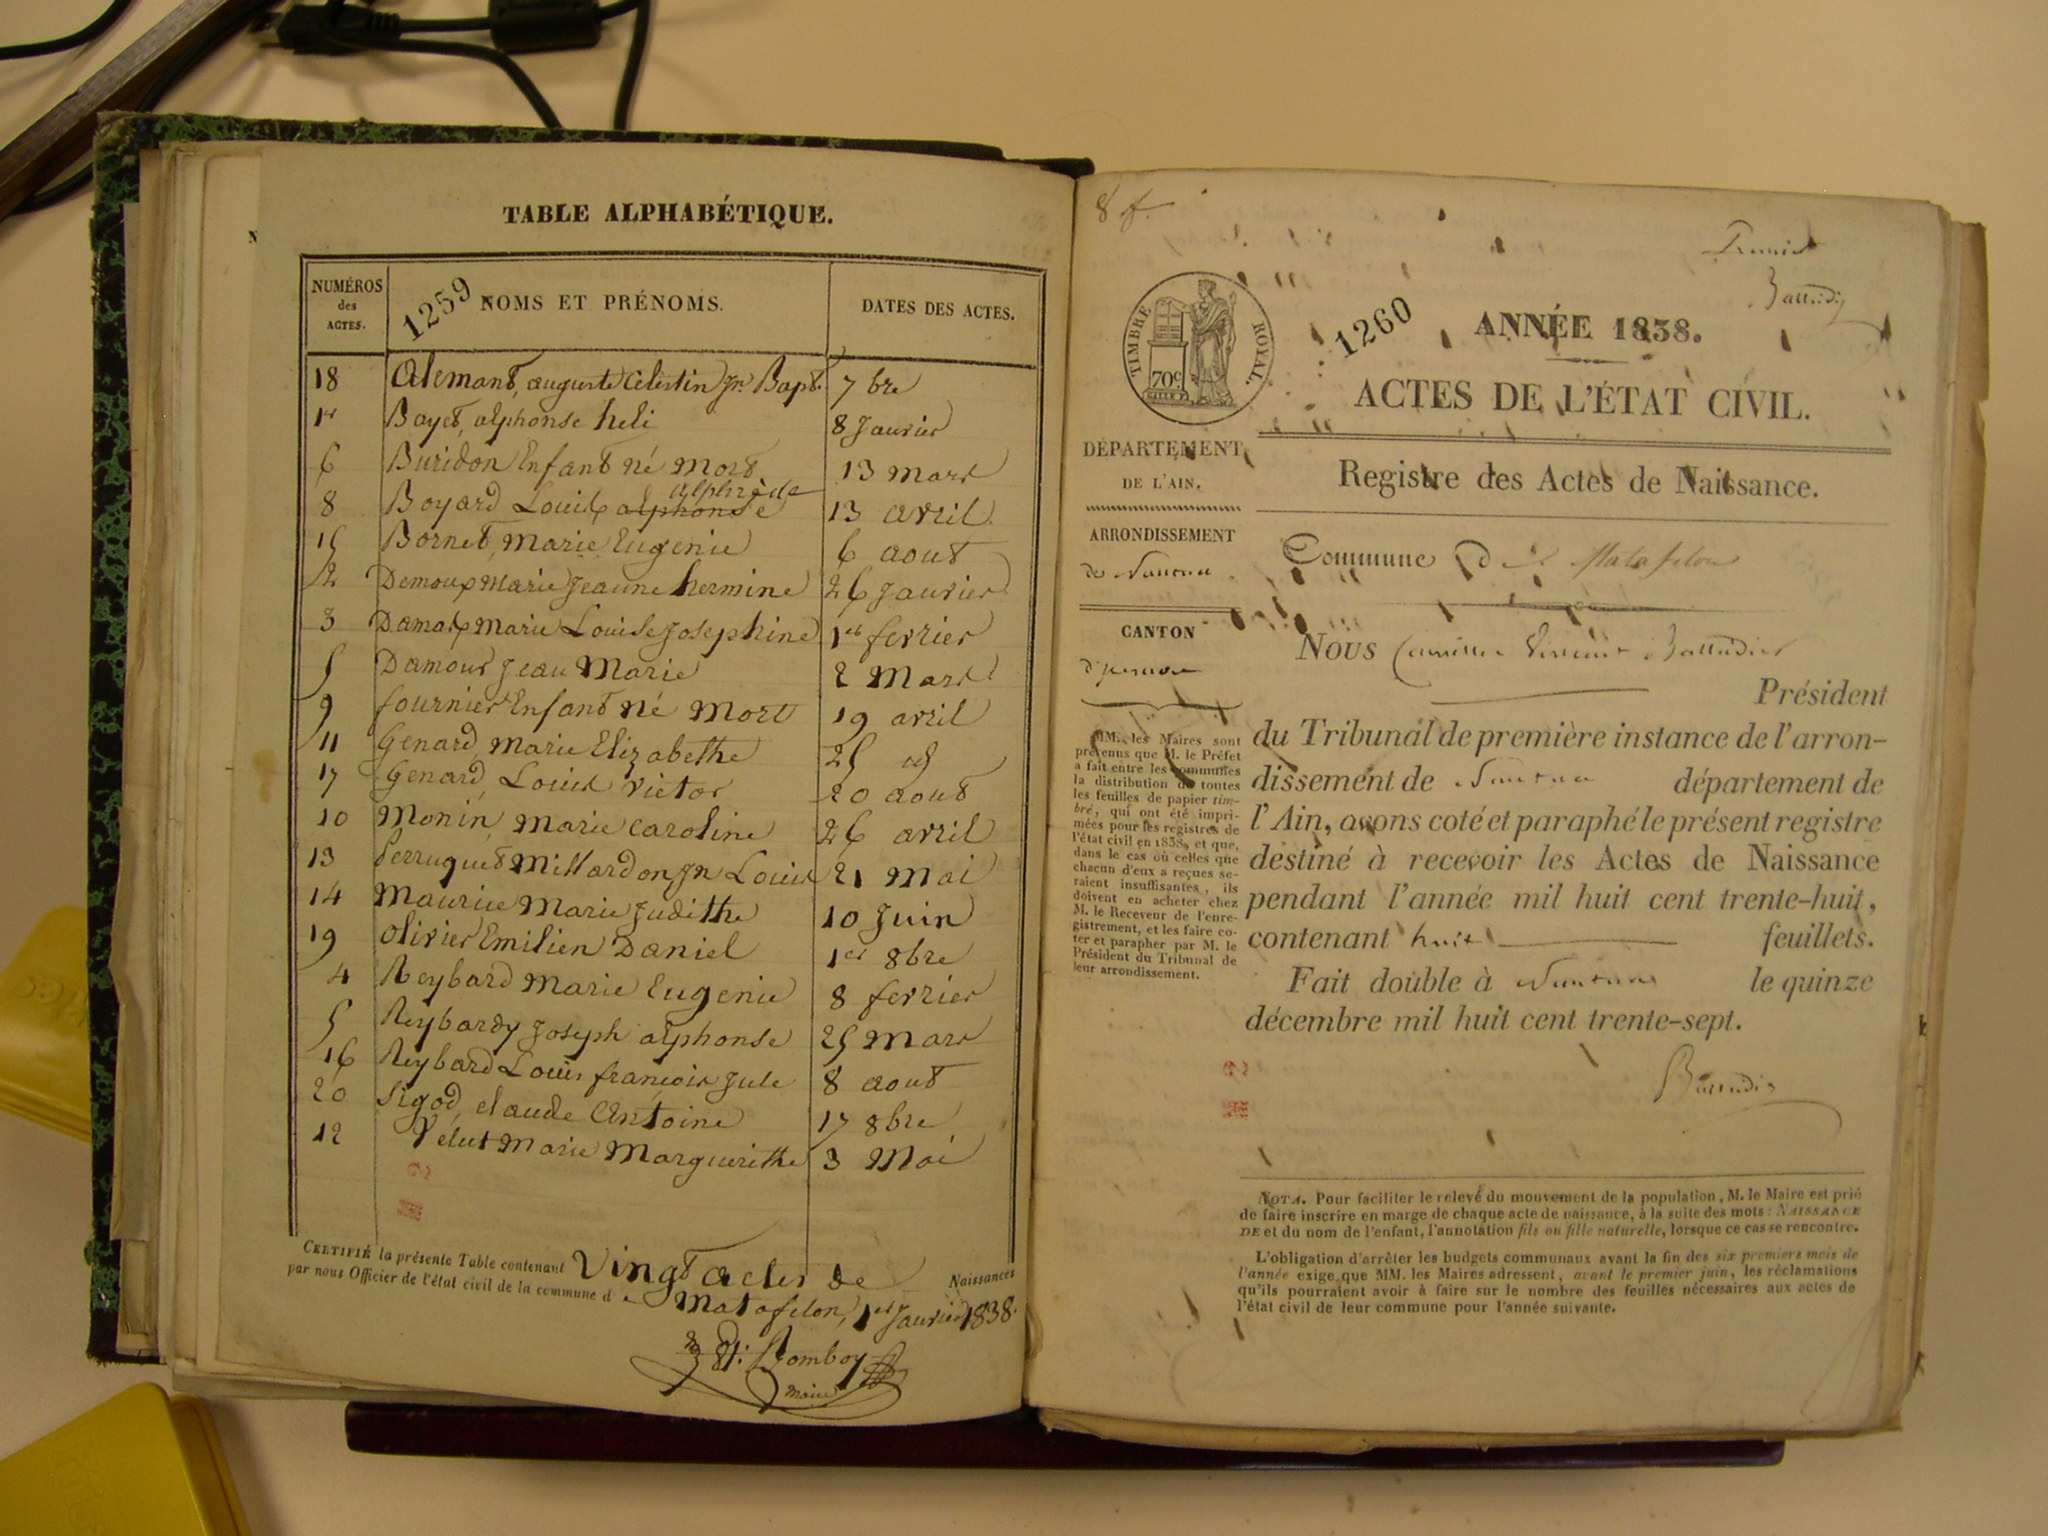 TABLE ALPHABÉTIQUE.
NUMÉROS des ACTES.
1259
NOMS ET PRÉNOMS.
DATES DES ACTES.
18 Alemant, auguste Celestin Jn Bapt. 7 bre
1er Bayet, alphonse heli 8 Janvier
6 Buridon Enfant né mort 13 mars
alphrède
8 Boyard Louis alphonse 13 avril
15 Bornet, Marie Eugenie 6 aout
2 Demoux Marie Jeanne hermine 26 Janvier
3 Damaix marie Louise Josephine 1er ferrier
5 Damour Jean Marie 2 Mars
9 fournier Enfant né mort 19 avril
11 Genard, marie Elizabethe 25 id
17 Genard, Louis victor 20 aout
10 Monin, marie caroline 26 avril
13 Perruquet Millardon Jn Louis 21 Mai
14 Maurice Marie Judithe 10 Juin
19 olivier Emilien Daniel 1er 8bre
4 Reybard Marie Eugenie 8 ferrier
5 Reybardy Joseph alphonse 25 mars
16 Reybard Louis françois Jule 8 aout
20 Sigod, claude Antoine 17 8bre
12 Velut Marie Marguerithe 3 Mai
CERTIFIÉ la présente Table contenant Vingt actes de Naissances
par nous Officier de l'état civil de la commune de Matafelon, 1er Janvier 1838.
Bomboy
maire
8 f.
Premier
Balludier
TIMBRE ROYAL.
70c
1260
ANNÉE 1838.
ACTES DE L'ÉTAT CIVIL.
DÉPARTEMENT
DE L'AIN.
ARRONDISSEMENT
de Nantua
CANTON
d'
MM. les Maires sont
prévenus que M. le Préfet
a fait entre les communes
la distribution de toutes
les feuilles de papier tim-
bré, qui ont été impri-
mées pour les registres de
l'état civil en 1838, et que,
dans le cas où celles que
chacun d'eux a reçues se-
raient insuffisantes, ils
doivent en acheter chez
M. le Receveur de l'enre-
gistrement, et les faire co-
ter et parapher par M. le
Président du Tribunal de
leur arrondissement.
Registre des Actes de Naissance.
Commune De Matafelon
NOUS Camille Vincent Balludier
Président
du Tribunal de première instance de l'arron-
dissement de Nantua département de
l'Ain, avons coté et paraphé le présent registre
destiné à recevoir les Actes de Naissance
pendant l'année mil huit cent trente-huit,
contenant huit feuillets.
Fait double à Nantua le quinze
décembre mil huit cent trente-sept.
Balludier
NOTA. Pour faciliter le relevé du mouvement de la population, M. le Maire est prié
de faire inscrire en marge de chaque acte de naissance, à la suite des mots : NAISSANCE
DE et du nom de l'enfant, l'annotation fils ou fille naturelle, lorsque ce cas se rencontre.
L'obligation d'arrêter les budgets communaux avant la fin des six premiers mois de
l'année exige que MM. les Maires adressent, avant le premier juin, les réclamations
qu'ils pourraient avoir à faire sur le nombre des feuilles nécessaires aux actes de
l'état civil de leur commune pour l'année suivante.